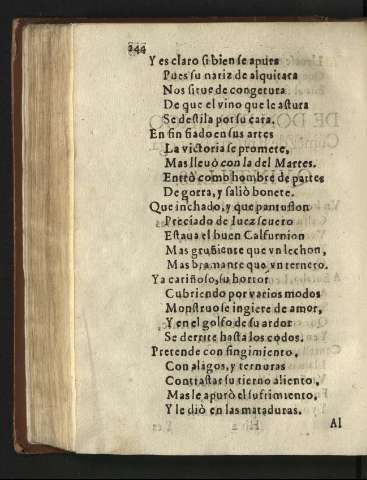 244
Y es claro si bien se apura
Pues su nariz de alquitara
Nos sirue de congetura
De que el vino que le astura
Se destila por su cara.
En fin fiado en sus artes
La victoria se promete,
Mas lleuò con la del Martes.
Entrò comb hombre de partes
De gorra, y saliò bonete.
Que inchado, y que pantuflon
Preciado de Iuez seuero
Estaua el buen Calfurnion
Mas gruñiente que vn lechon,
Mas bramante que vn ternero.
Ya cariñoso, su horror
Cubriendo por varios modos
Monstruo se ingiere de amor,
Y en el golfo de su ardor
Se derrite hasta los codos.
Pretende con fingimiento,
Con alagos, y ternuras
Contrastar su tierno aliento,
Mas le apurò el sufrimiento,
Y le diò en las mataduras.
Al